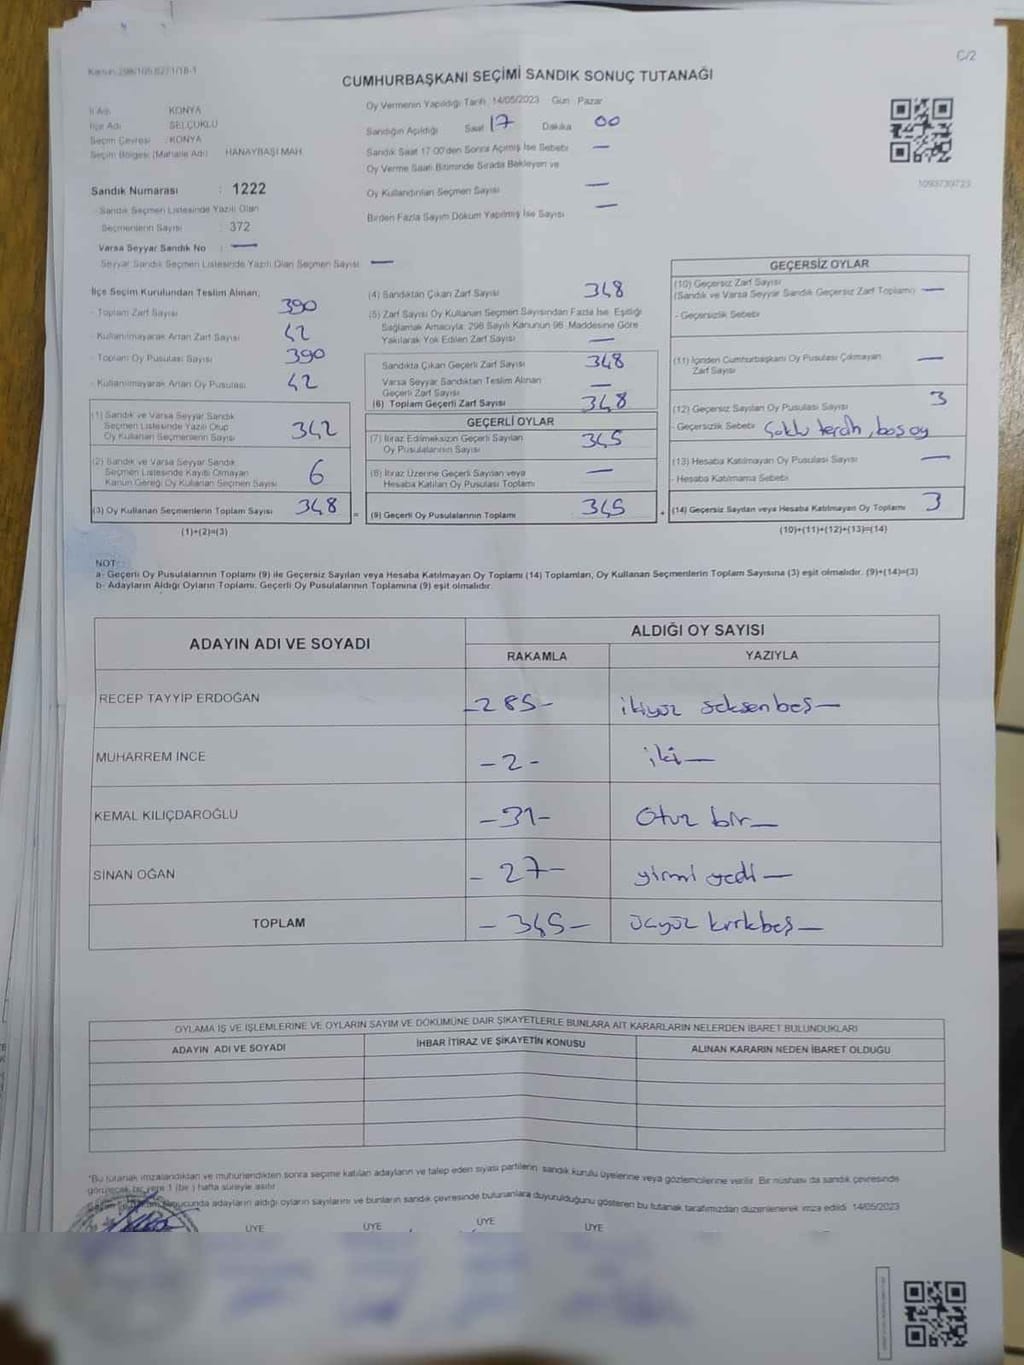 C/2
CUMHURBAŞKANI SEÇİMİ SANDIK SONUÇ TUTANAĞI
İl Adı KONYA
İlçe Adı SELÇUKLU
Seçim Çevresi : KONYA
Seçim Bölgesi (Mahalle Adı) HANAYBAŞI MAH.
Sandık Numarası : 1222
Sandık Seçmen Listesinde Yazılı Olan
Seçmenlerin Sayısı : 372
Varsa Seyyar Sandık No : —
Seyyar Sandık Seçmen Listesinde Yazılı Olan Seçmen Sayısı —
Oy Vermenin Yapıldığı Tarih 14/05/2023 Gün Pazar
Sandığın Açıldığı Saat 17 Dakika 00
Sandık Saat 17:00'den Sonra Açılmış İse Sebebi —
Oy Verme Saati Bitiminde Sırada Bekleyen ve
Oy Kullandırılan Seçmen Sayısı —
Birden Fazla Sayım Döküm Yapılmış İse Sayısı —
1093730723
İlçe Seçim Kurulundan Teslim Alınan;
- Toplam Zarf Sayısı 390
- Kullanılmayarak Artan Zarf Sayısı 42
- Toplam Oy Pusulası Sayısı 390
- Kullanılmayarak Artan Oy Pusulası 42
(1) Sandık ve Varsa Seyyar Sandık
Seçmen Listesinde Yazılı Olup
Oy Kullanan Seçmenlerin Sayısı 342
(2) Sandık ve Varsa Seyyar Sandık
Seçmen Listesinde Kayıtlı Olmayan
Kanun Gereği Oy Kullanan Seçmen Sayısı 6
(3) Oy Kullanan Seçmenlerin Toplam Sayısı 348
(1)+(2)=(3)
(4) Sandıktan Çıkan Zarf Sayısı 348
(5) Zarf Sayısı Oy Kullanan Seçmen Sayısından Fazla İse, Eşitliği
Sağlamak Amacıyla; 298 Sayılı Kanunun 98. Maddesine Göre
Yakılarak Yok Edilen Zarf Sayısı —
Sandıkta Çıkan Geçerli Zarf Sayısı 348
Varsa Seyyar Sandıktan Teslim Alınan
Geçerli Zarf Sayısı —
(6) Toplam Geçerli Zarf Sayısı 348
GEÇERLİ OYLAR
(7) İtiraz Edilmeksizin Geçerli Sayılan
Oy Pusulalarının Sayısı 345
(8) İtiraz Üzerine Geçerli Sayılan veya
Hesaba Katılan Oy Pusulası Toplamı —
= (9) Geçerli Oy Pusulalarının Toplamı 345 +
GEÇERSİZ OYLAR
(10) Geçersiz Zarf Sayısı
(Sandık ve Varsa Seyyar Sandık Geçersiz Zarf Toplamı) —
- Geçersizlik Sebebi
(11) İçinden Cumhurbaşkanı Oy Pusulası Çıkmayan
Zarf Sayısı —
(12) Geçersiz Sayılan Oy Pusulası Sayısı 3
- Geçersizlik Sebebi Çoklu tercih, boş oy
(13) Hesaba Katılmayan Oy Pusulası Sayısı —
- Hesaba Katılmama Sebebi
(14) Geçersiz Sayılan veya Hesaba Katılmayan Oy Toplamı 3
(10)+(11)+(12)+(13)=(14)
NOT:
a- Geçerli Oy Pusulalarının Toplamı (9) ile Geçersiz Sayılan veya Hesaba Katılmayan Oy Toplamı (14) Toplamları, Oy Kullanan Seçmenlerin Toplam Sayısına (3) eşit olmalıdır. (9)+(14)=(3)
b- Adayların Aldığı Oyların Toplamı, Geçerli Oy Pusulalarının Toplamına (9) eşit olmalıdır.
ADAYIN ADI VE SOYADI ALDIĞI OY SAYISI
RAKAMLA YAZIYLA
RECEP TAYYİP ERDOĞAN -285- ikiyüz seksenbeş—
MUHARREM İNCE -2- iki—
KEMAL KILIÇDAROĞLU -31- Otuz bir—
SİNAN OĞAN -27- yirmi yedi—
TOPLAM -345- üçyüz kırkbeş—
OYLAMA İŞ VE İŞLEMLERİNE VE OYLARIN SAYIM VE DÖKÜMÜNE DAİR ŞİKAYETLERLE BUNLARA AİT KARARLARIN NELERDEN İBARET BULUNDUKLARI
ADAYIN ADI VE SOYADI İHBAR İTİRAZ VE ŞİKAYETİN KONUSU ALINAN KARARIN NEDEN İBARET OLDUĞU
*Bu tutanak imzalandıktan ve mühürlendikten sonra seçime katılan adayların ve talep eden siyasi partilerin sandık kurulu üyelerine veya gözlemcilerine verilir. Bir nüshası da sandık çevresinde
görülecek bir yere 1 (bir) hafta süreyle asılır.
sonucunda adayların aldığı oyların sayılarını ve bunların sandık çevresinde bulunanlara duyurulduğunu gösteren bu tutanak tarafımızdan düzenlenerek imza edildi. 14/05/2023
ÜYE ÜYE ÜYE ÜYE